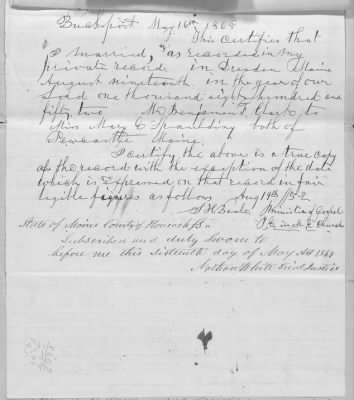 Bucksport May 16th 1865
This certifies that
I married, as recorded in my
private record, in Dresden Maine
August nineteenth in the year of our
Lord one thousand eight hundred and
fifty two Mr Benjamin F. Clark to
Miss Mary E Spaulding both of
Newcastle Maine.
I certify the above is a true copy
of the record with the exception of the date
which is expressed on that record in fair
legible figures as follows Aug 19th /52
Minister of Gospel
Church
State of Maine County of Hancock Ss
Subscribed and duly Sworn to
before me this Sixteenth day of May AD 1865
Nathan White Trial Justice